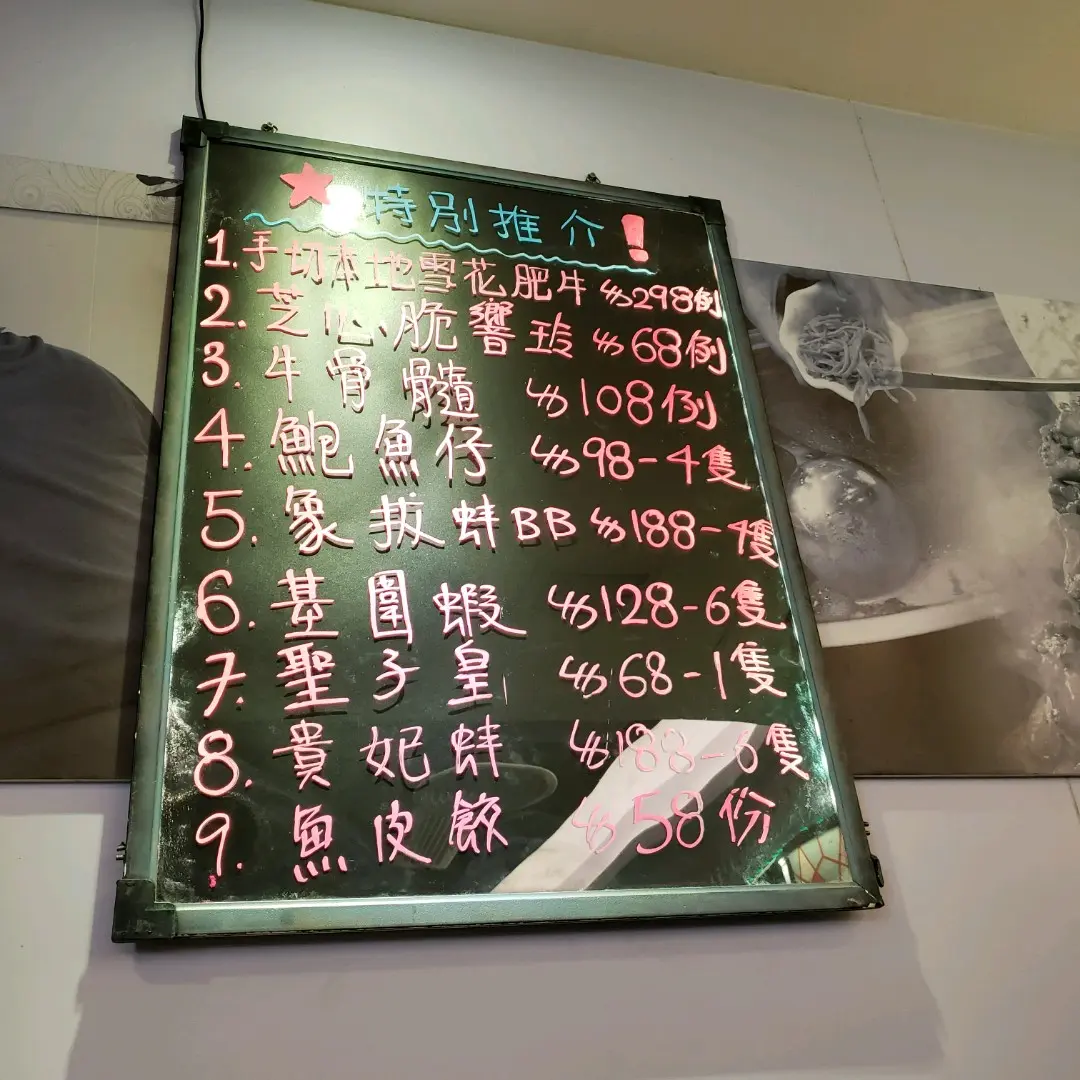 特別推介!
1. 手切本地雪花肥牛 $298例
2. 芝心脆響玲 $68例
3. 牛骨髓 $108例
4. 鮑魚仔 $98-4隻
5. 象拔蚌BB $188-4隻
6. 基圍蝦 $128-6隻
7. 聖子皇 $68-1隻
8. 貴妃蚌 $188-6隻
9. 魚皮餃 $58份